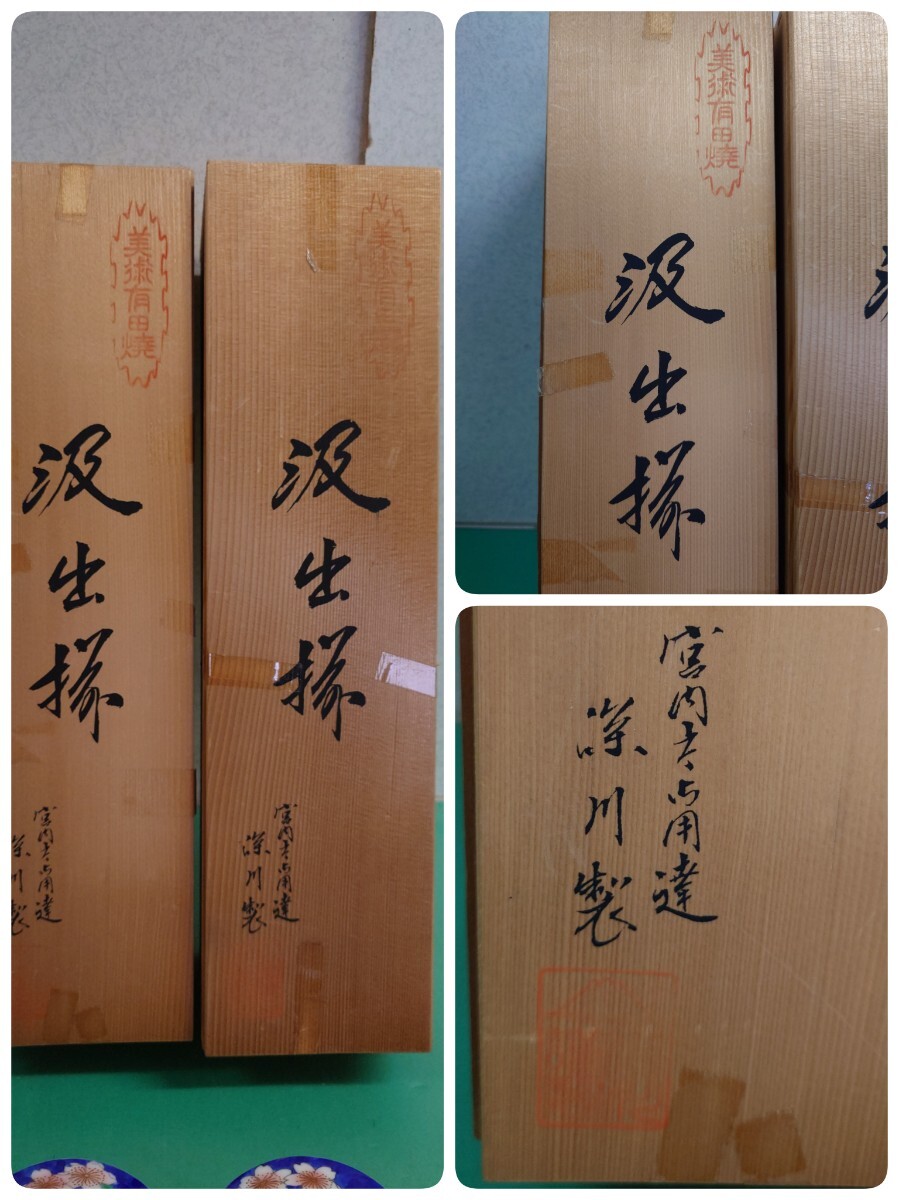 美術有田焼
汲出揃
宮内庁御用達
深川製
美術有田焼
汲出揃
宮内庁御用達
深川製
美術有田焼
汲出揃
宮内庁御用達
深川製